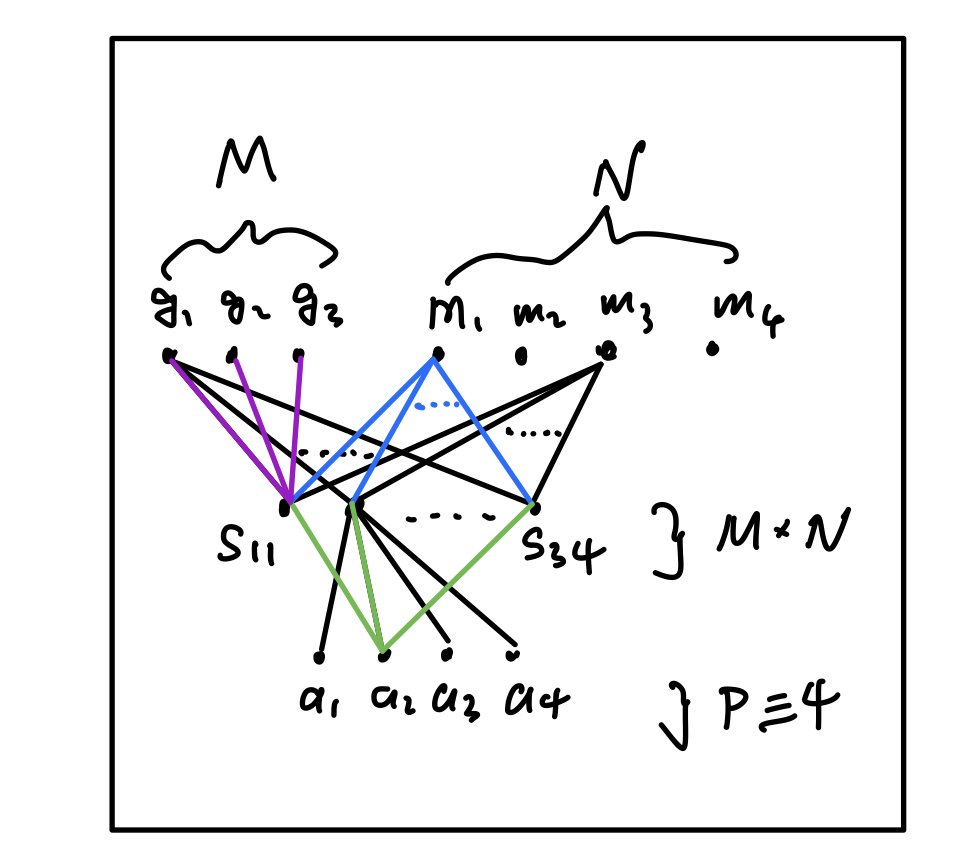 M N
g₁ g₂ g₃ m₁ m₂ m₃ m₄
S₁₁ S₃₄ } M * N
a₁ a₂ a₃ a₄ } P ≡ 4